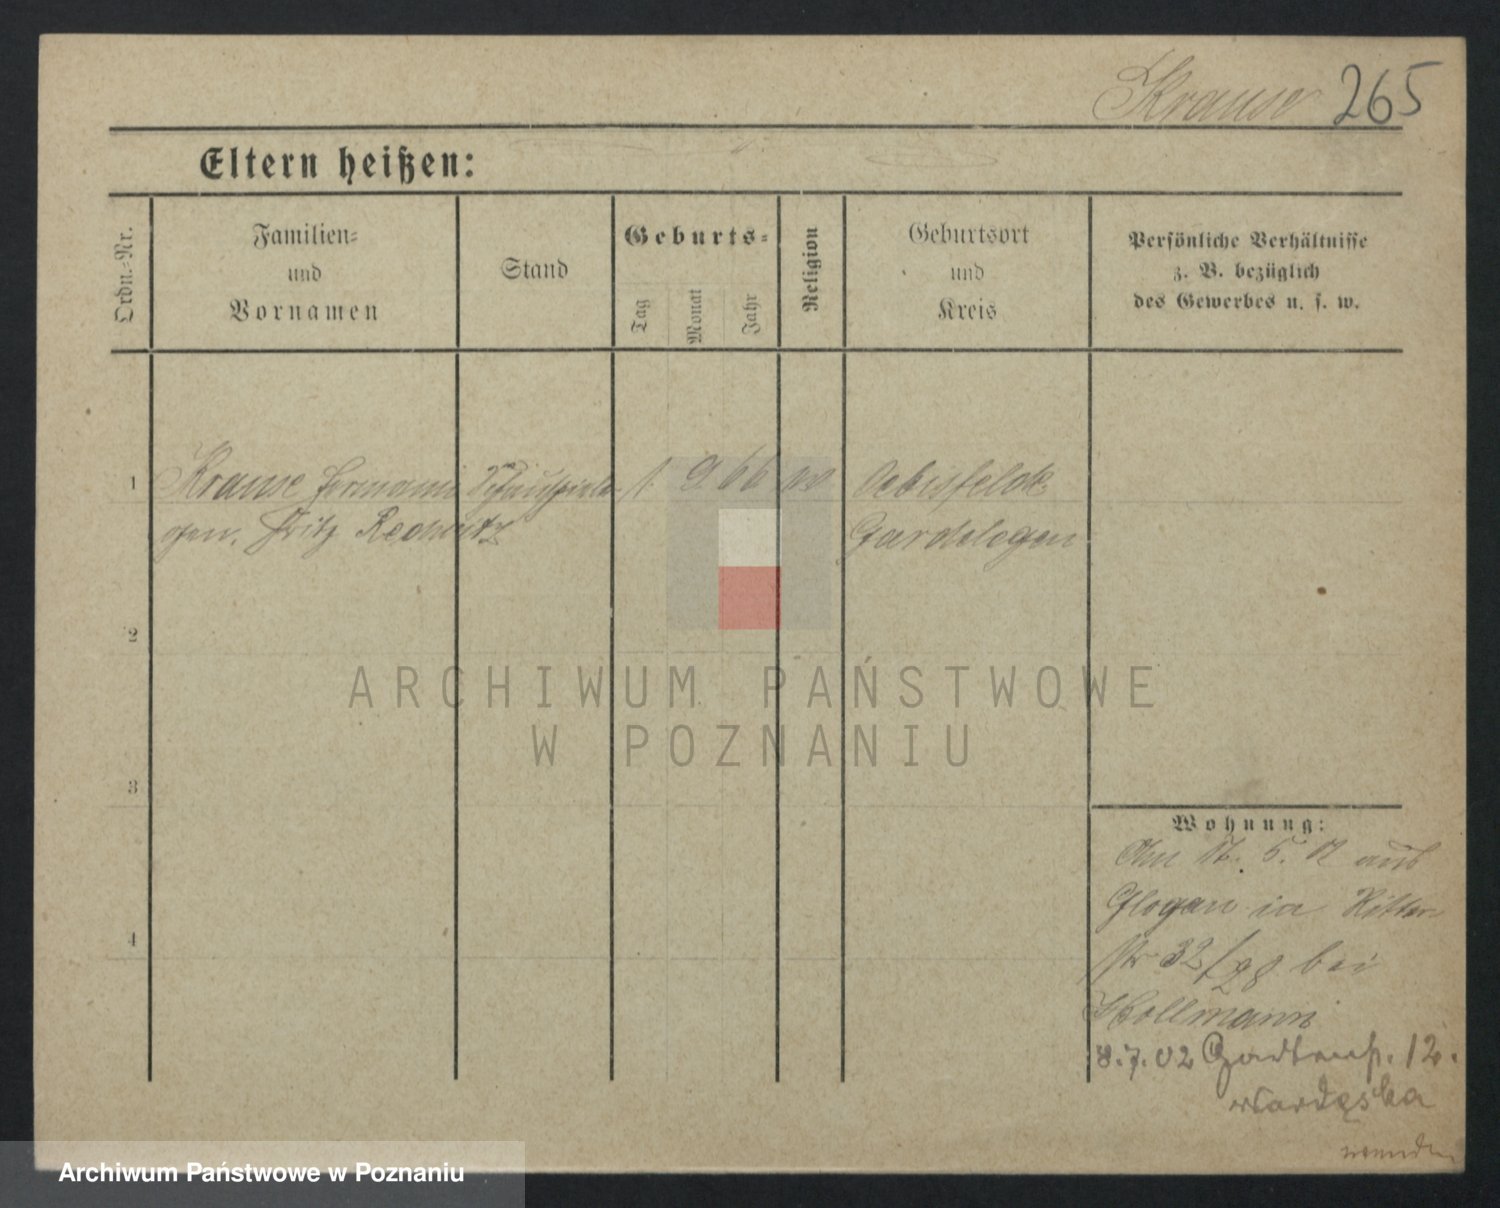 Krause 265
Eltern heißen:
Ordn.-Nr.
Familien-
und
Vornamen
Stand
Geburts-
Tag
Monat
Jahr
Religion
Geburtsort
und
Kreis
Persönliche Verhältnisse
z. B. bezüglich
des Gewerbes u. s. w.
1 Krause Hermann 1. 9 66 Oebisfelde
gen. Fritz Gardelegen
2
3
4
Wohnung:
Am 5. aus
Glogau in Ritter
str 32/28 bei
Hollmann
8.7.02 Gartenstr. 12.
wenden
ARCHIWUM PAŃSTWOWE
W POZNANIU
Archiwum Państwowe w Poznaniu